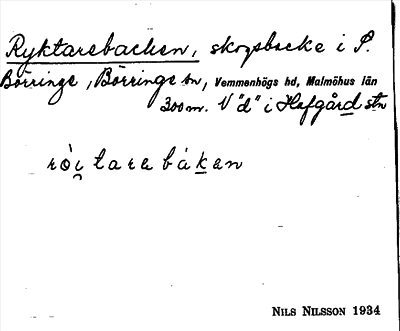 Ryktarebacken, skogsbacke i S.
Börringe, Börringe sn, Vemmenhögs hd, Malmöhus län
300 m. V "d" i Hafgård stn
ròi̯tarebàken
NILS NILSSON 1934